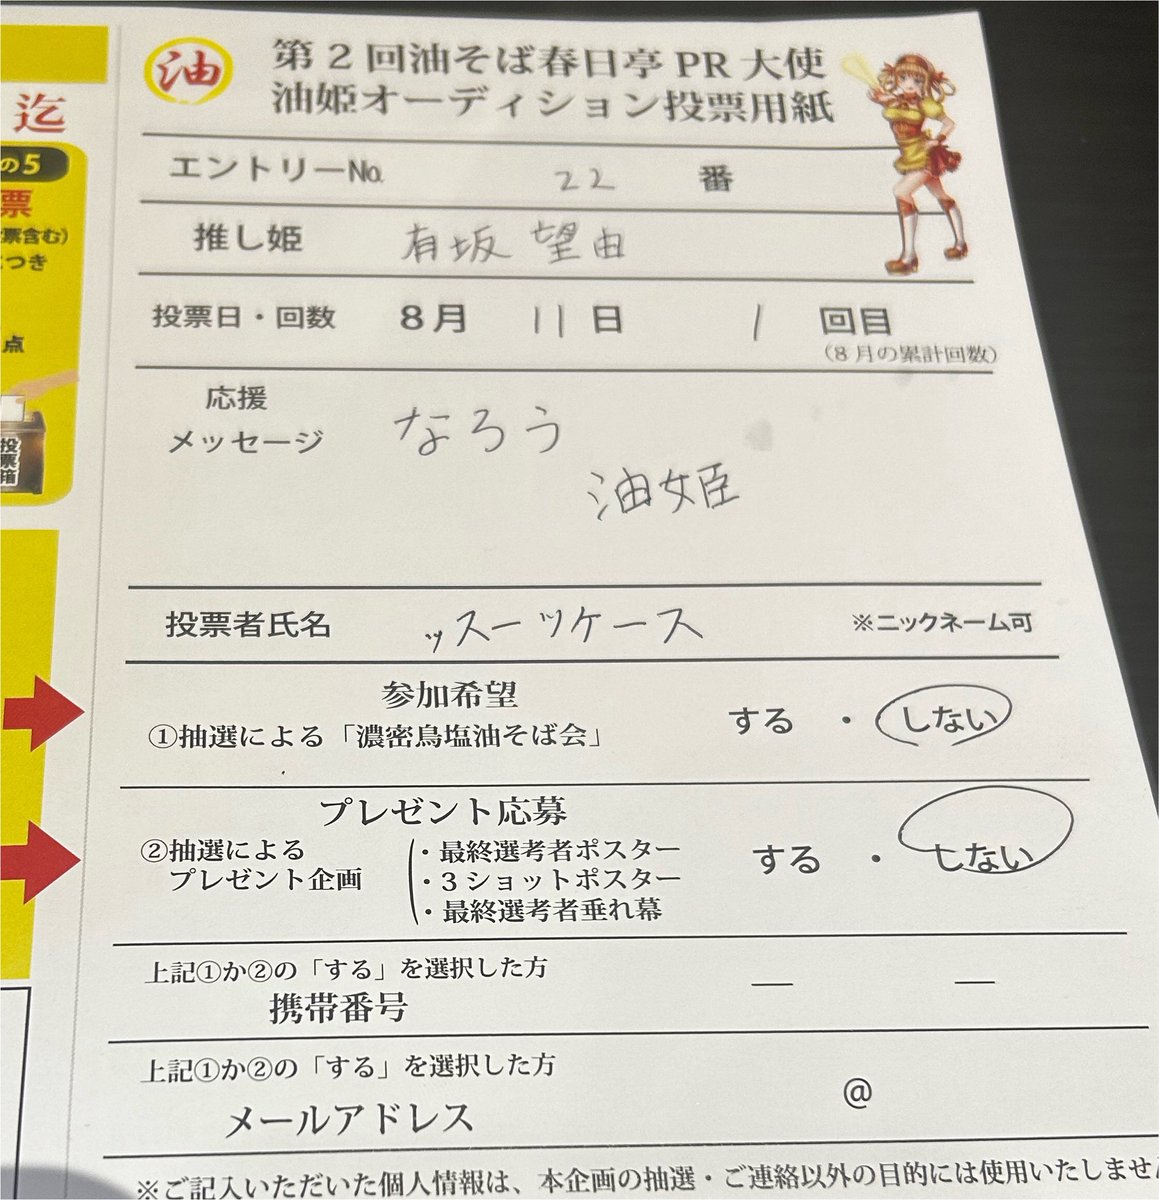 迄
の5
票
票含む)
につき
点
投票箱
油
第2回油そば春日亭PR大使
油姫オーディション投票用紙
エントリーNo. 22 番
推し姫 有坂 望由
投票日・回数 8月 11日 1 回目
(8月の累計回数)
応援
メッセージ
なろう
油姫
投票者氏名 ッスーツケース ※ニックネーム可
参加希望
①抽選による「濃密鳥塩油そば会」 する ・ しない
プレゼント応募
②抽選による
プレゼント企画
・最終選考者ポスター
・3ショットポスター
・最終選考者垂れ幕
する ・ しない
上記①か②の「する」を選択した方
携帯番号 — —
上記①か②の「する」を選択した方
メールアドレス @
※ご記入いただいた個人情報は、本企画の抽選・ご連絡以外の目的には使用いたしませ